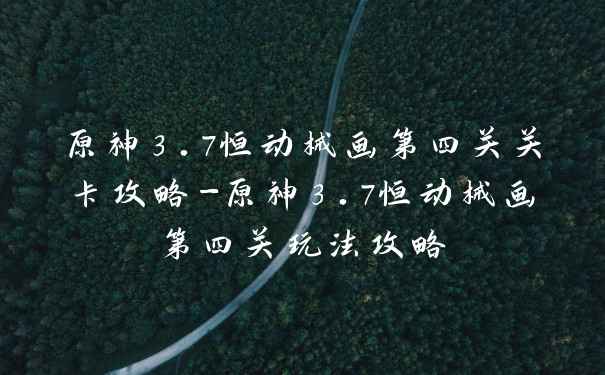 原神3.7恒动械画第四关关
卡攻略-原神3.7恒动械画
第四关玩法攻略